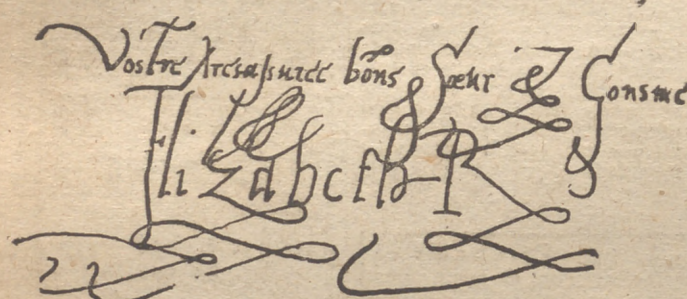 Vostre tresassuree bonẽ Sœur & Cousine
Elizabeth R